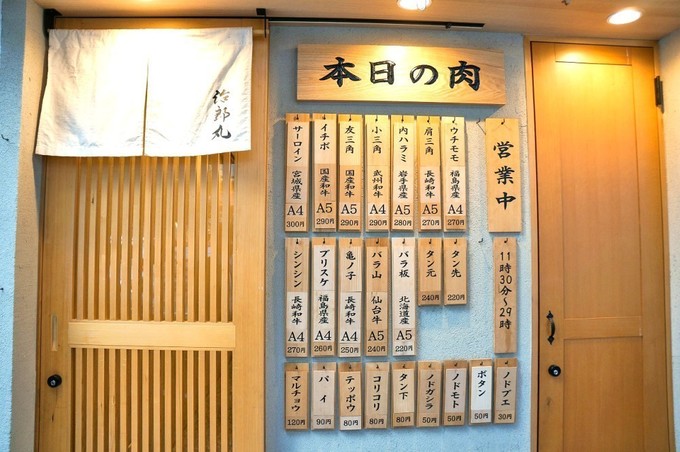 治郎丸
本日の肉
営業中
11時30分~29時
ウチモモ 福島県産 A4 270円
肩三角 長崎和牛 A5 270円
内ハラミ 岩手県産 A5 280円
小三角 武州和牛 A4 290円
友三角 国産和牛 A5 290円
イチボ 国産和牛 A5 290円
サーロイン 宮城県産 A4 300円
タン先 220円
タン元 240円
バラ板 北海道産 A5 220円
バラ山 仙台牛 A5 240円
亀ノ子 長崎和牛 A4 250円
ブリスケ 福島県産 A4 260円
シンシン 長崎和牛 A4 270円
ノドブエ 30円
ボタン 50円
ノドモト 50円
ノドガシラ 50円
タン下 80円
コリコリ 80円
テッポウ 80円
パイ 90円
マルチョウ 120円